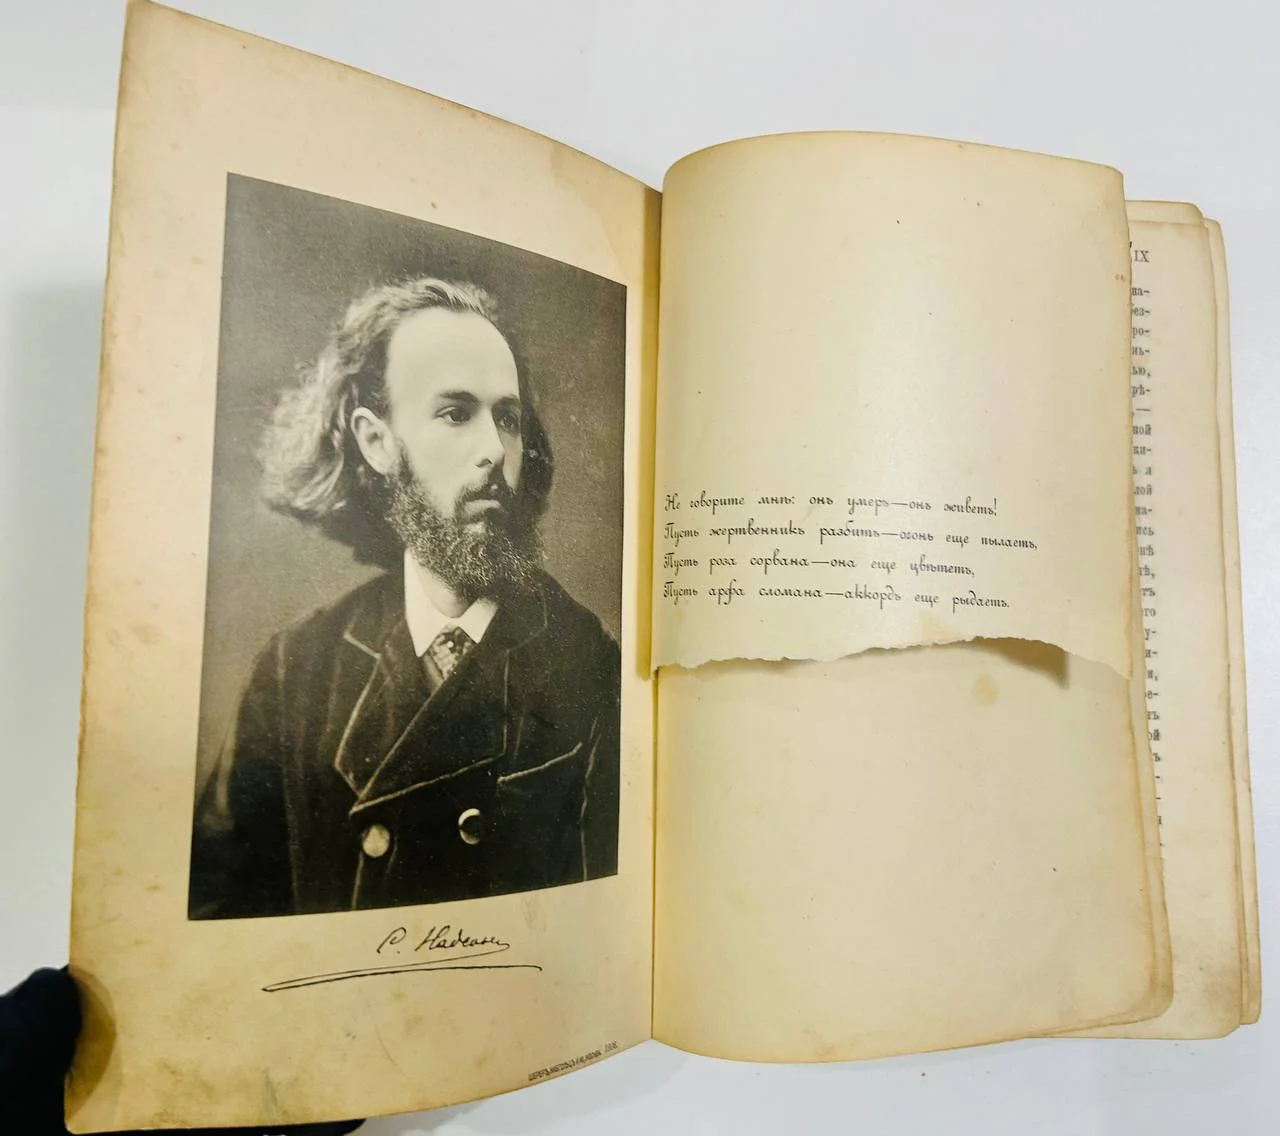 С. Надсонъ
ШЕРЕРЪ, НАБГОЛЬЦЪ И Кº, МОСКВА. 1908.
Не говорите мнѣ: онъ умеръ—онъ живетъ!
Пусть жертвенникъ разбитъ—огонь еще пылаетъ,
Пусть роза сорвана—она еще цвѣтетъ,
Пусть арфа сломана—аккордъ еще рыдаетъ.
IX
на-
без-
ро-
нь-
ью,
рѣ-
—
ной
ки-
ь я
лой
на-
ись
нѣ